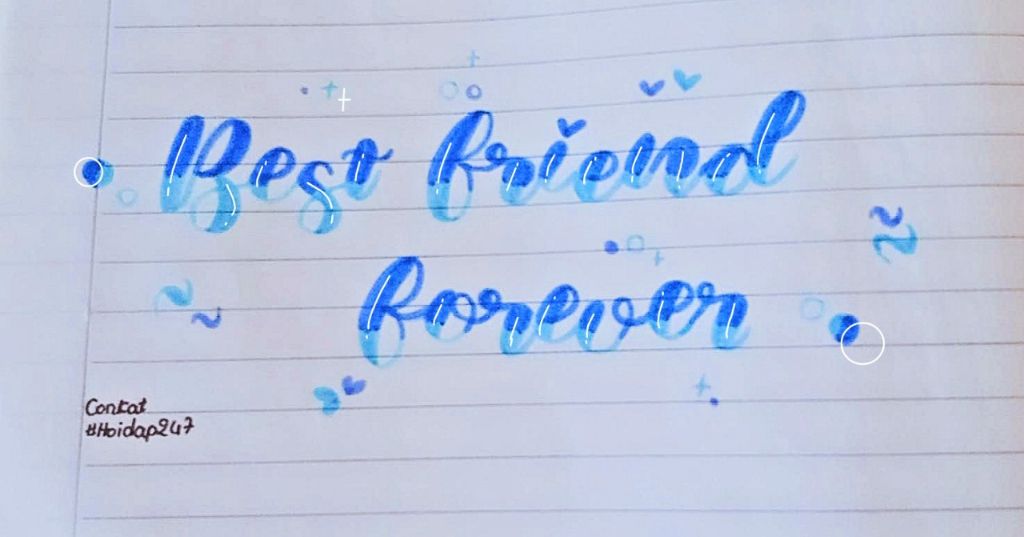 Best friend
forever
Contat
#Hoidap247